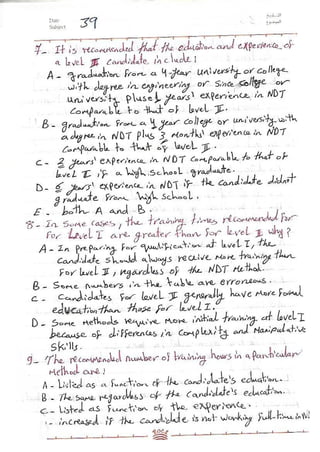 Date
Subject 39
7- It is recommended that the education and experience of
a level III candidate include:
A- graduation from a 4-year university or college
with degree in engineering or since college or
university pluse 1 years' experience in NDT
Comparable to that of level II.
B- graduation from a 4 year college or university with
a degree in NDT plus 3 months' experience in NDT
Comparable to that of level II.
C- 2 years' experience in NDT comparable to that of
level II if a high school graduate.
D- 5 years' experience in NDT if the candidate didnot
graduate from high school.
E- both A and B.
8- In some cases, the training times recommended for
for level I are greater than for level II why?
A- In preparing for qualification at level I, the
candidate should always receive more training than
for level II, regardless of the NDT Method.
B- Some numbers in the table are erroneous.
C- Candidates for level II generally have more formal
education than those for level I.
D- Some methods require more initial training at level I
because of differences in complexity and Manipulative
Skills.
9- The recommended number of training hours in a particular
Method are:
A- Listed as a function of the candidate's education.
B- The same regardless of the Candidate's education.
C- Listed as function of the experience.
- increased if the candidate is not working full-time in